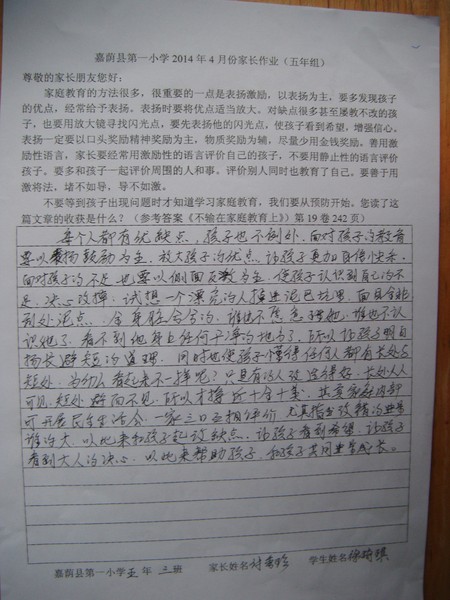 嘉荫县第一小学 2014 年 4 月份家长作业（五年组）
尊敬的家长朋友您好：
家庭教育的方法很多，很重要的一点是表扬激励，以表扬为主，要多发现孩子
的优点，经常给予表扬。表扬时要将优点适当放大。对缺点很多甚至屡教不改的孩
子，也要用放大镜寻找闪光点，要先表扬他的闪光点，使孩子看到希望，增强信心。
表扬一定要以口头奖励精神奖励为主，物质奖励为辅，尽量少用金钱奖励。善用激
励性语言，家长要经常用激励性的语言评价自己的孩子，不要用静止性的语言评价
孩子。要多和孩子一起评价周围的人和事。评价别人同时也教育了自己。要善于用
激将法，堵不如导，导不如激。
不要等到孩子出现问题时才知道学习家庭教育，我们要从预防开始。您读了这
篇文章的收获是什么？（参考答案《不输在家庭教育上》）第 19 卷 242 页）
每个人都有优缺点，孩子也不例外，面对孩子的教育
要以表扬鼓励为主，放大孩子的优点，让孩子更加自信快乐。
面对孩子的不足也要以侧面教为主，使孩子认识到自己的不
足，决心改掉，试想一个漂亮的人掉进泥巴坑里，面目全非
到处泥点，全身脏兮兮的，谁也不
识她了，看不到她身上任何干净的地方了，所以让孩子明白
扬长避短的道理，同时也使孩子懂得任何人都有长处与
短处，为什么看起来不一样呢？只是有的人改造得好，长处人人
可见，短处避而不见，所以才接近十全十美，在家庭内部
可开展民主生活会，一家三口互相评价，尤其
谁的大，以此来和孩子比改缺点，让孩子看到希望，让孩子
看到大人的决心，以此来帮助孩子，和孩子共同成长。
嘉荫县第一小学五年三班 家长姓名 学生姓名